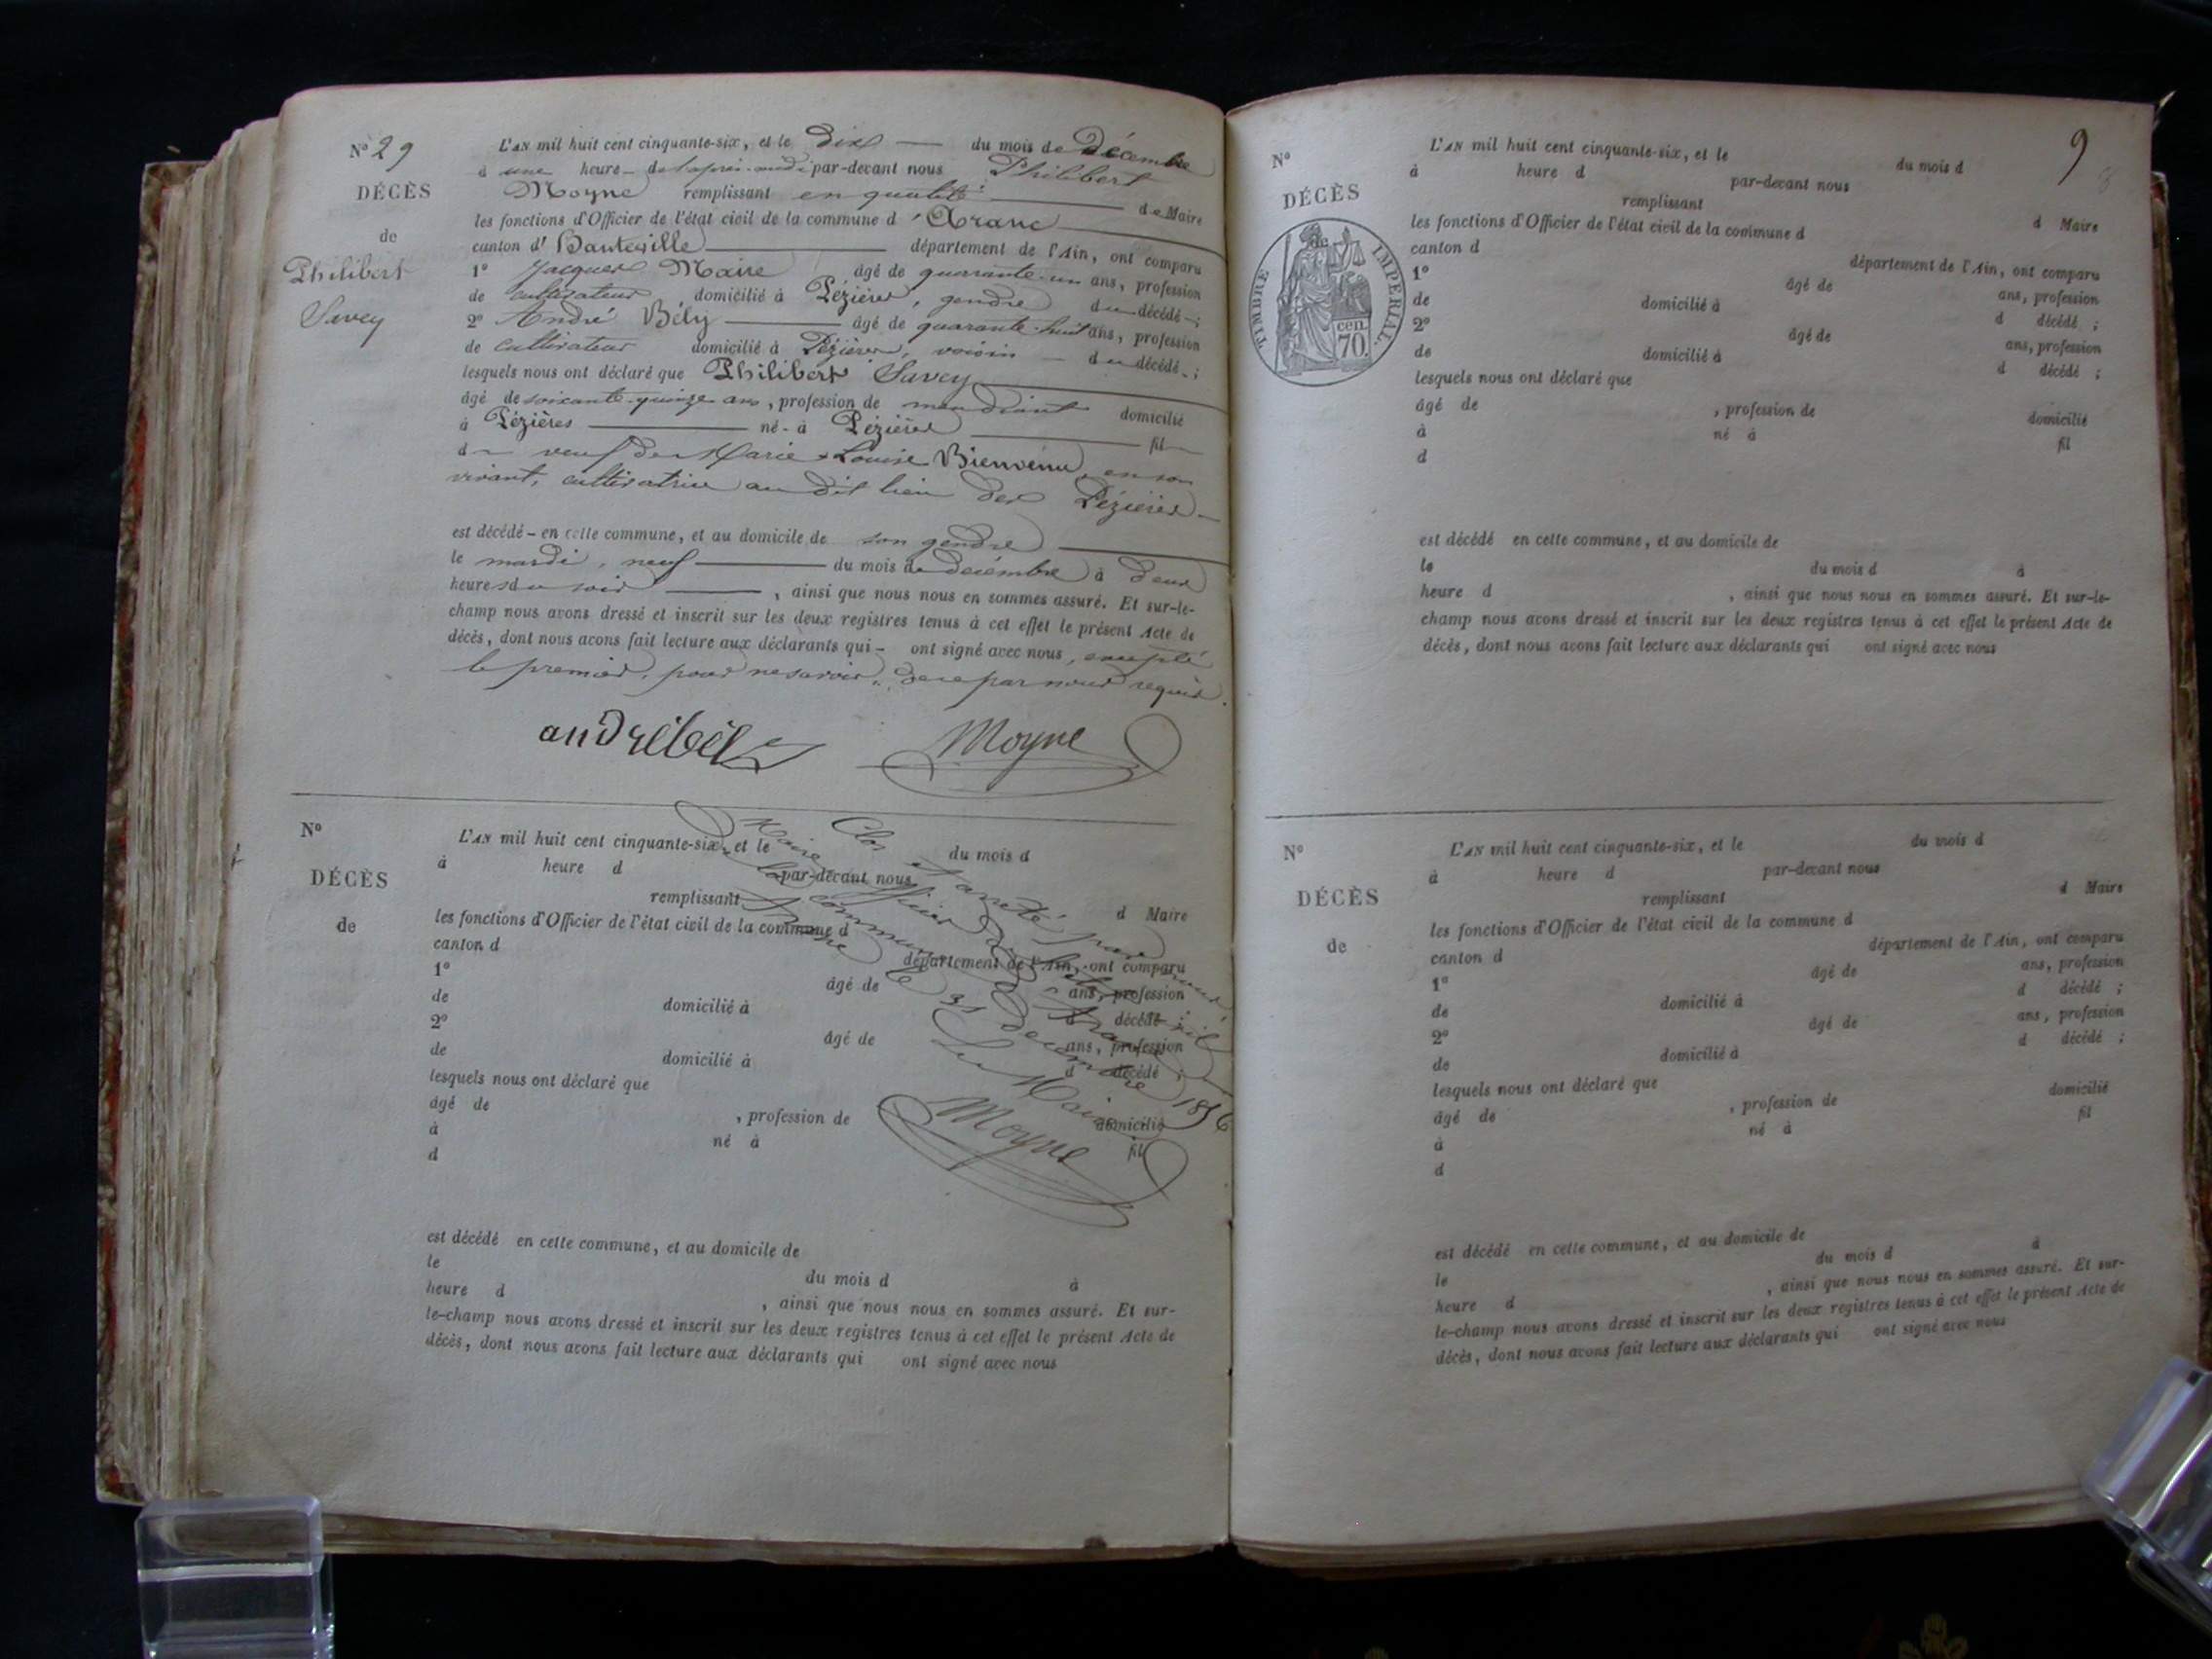 Nº 29
DÉCÈS
de
Philibert
Savey
L'AN mil huit cent cinquante-six, et le Dix du mois de Décembre
à une heure de l'après-midi par-devant nous Philibert
Moyne remplissant en qualité de Maire
les fonctions d'Officier de l'état civil de la commune d'Aranc
canton d'Hauteville département de l'Ain, ont comparu
1º Jacques Maire âgé de quarante-un ans, profession
de cultivateur, domicilié à Pézières, gendre du décédé ;
2º André Bély âgé de quarante-huit ans, profession
de cultivateur domicilié à Pézières, voisin du décédé ;
lesquels nous ont déclaré que Philibert Savey
âgé de soixante-quinze ans, profession de mendiant domicilié
à Pézières né à Pézières fil
d veuf de Marie Louise Bienvenu, en son
vivant, cultivatrice au dit lieu des Pézières
est décédé en cette commune, et au domicile de son gendre
le mardi, neuf du mois de décembre à Deux
heures du soir, ainsi que nous nous en sommes assuré. Et sur-le-
champ nous avons dressé et inscrit sur les deux registres tenus à cet effet le présent Acte de
décès, dont nous avons fait lecture aux déclarants qui ont signé avec nous, excepté
le premier, pour ne savoir, de ce par nous requis.
andré bély Moyne
Nº
DÉCÈS
de
L'AN mil huit cent cinquante-six, et le du mois d
à heure d par-devant nous
remplissant d Maire
les fonctions d'Officier de l'état civil de la commune d
canton d département de l'Ain, ont comparu
1º âgé de ans, profession
de domicilié à d décédé ;
2º âgé de ans, profession
de domicilié à d décédé ;
lesquels nous ont déclaré que
âgé de , profession de domicilié
à né à fil
d
est décédé en cette commune, et au domicile de
le du mois d à
heure d , ainsi que nous nous en sommes assuré. Et sur-
le-champ nous avons dressé et inscrit sur les deux registres tenus à cet effet le présent Acte de
décès, dont nous avons fait lecture aux déclarants qui ont signé avec nous
Clos et arrêté par nous
Maire officier de l'état civil
de la commune d'Aranc
Aranc le 31 Décembre 1856
Le Maire
Moyne
9
Nº
DÉCÈS
de
TIMBRE IMPERIAL
70 cen.
L'AN mil huit cent cinquante-six, et le du mois d
à heure d par-devant nous
remplissant d Maire
les fonctions d'Officier de l'état civil de la commune d
canton d département de l'Ain, ont comparu
1º âgé de ans, profession
de domicilié à d décédé ;
2º âgé de ans, profession
de domicilié à d décédé ;
lesquels nous ont déclaré que
âgé de , profession de domicilié
à né à fil
d
est décédé en cette commune, et au domicile de
le du mois d à
heure d , ainsi que nous nous en sommes assuré. Et sur-le-
champ nous avons dressé et inscrit sur les deux registres tenus à cet effet le présent Acte de
décès, dont nous avons fait lecture aux déclarants qui ont signé avec nous
Nº
DÉCÈS
de
L'AN mil huit cent cinquante-six, et le du mois d
à heure d par-devant nous
remplissant d Maire
les fonctions d'Officier de l'état civil de la commune d
canton d département de l'Ain, ont comparu
1º âgé de ans, profession
de domicilié à d décédé ;
2º âgé de ans, profession
de domicilié à d décédé ;
lesquels nous ont déclaré que
âgé de , profession de domicilié
à né à fil
d
est décédé en cette commune, et au domicile de
le du mois d à
heure d , ainsi que nous nous en sommes assuré. Et sur-
le-champ nous avons dressé et inscrit sur les deux registres tenus à cet effet le présent Acte de
décès, dont nous avons fait lecture aux déclarants qui ont signé avec nous